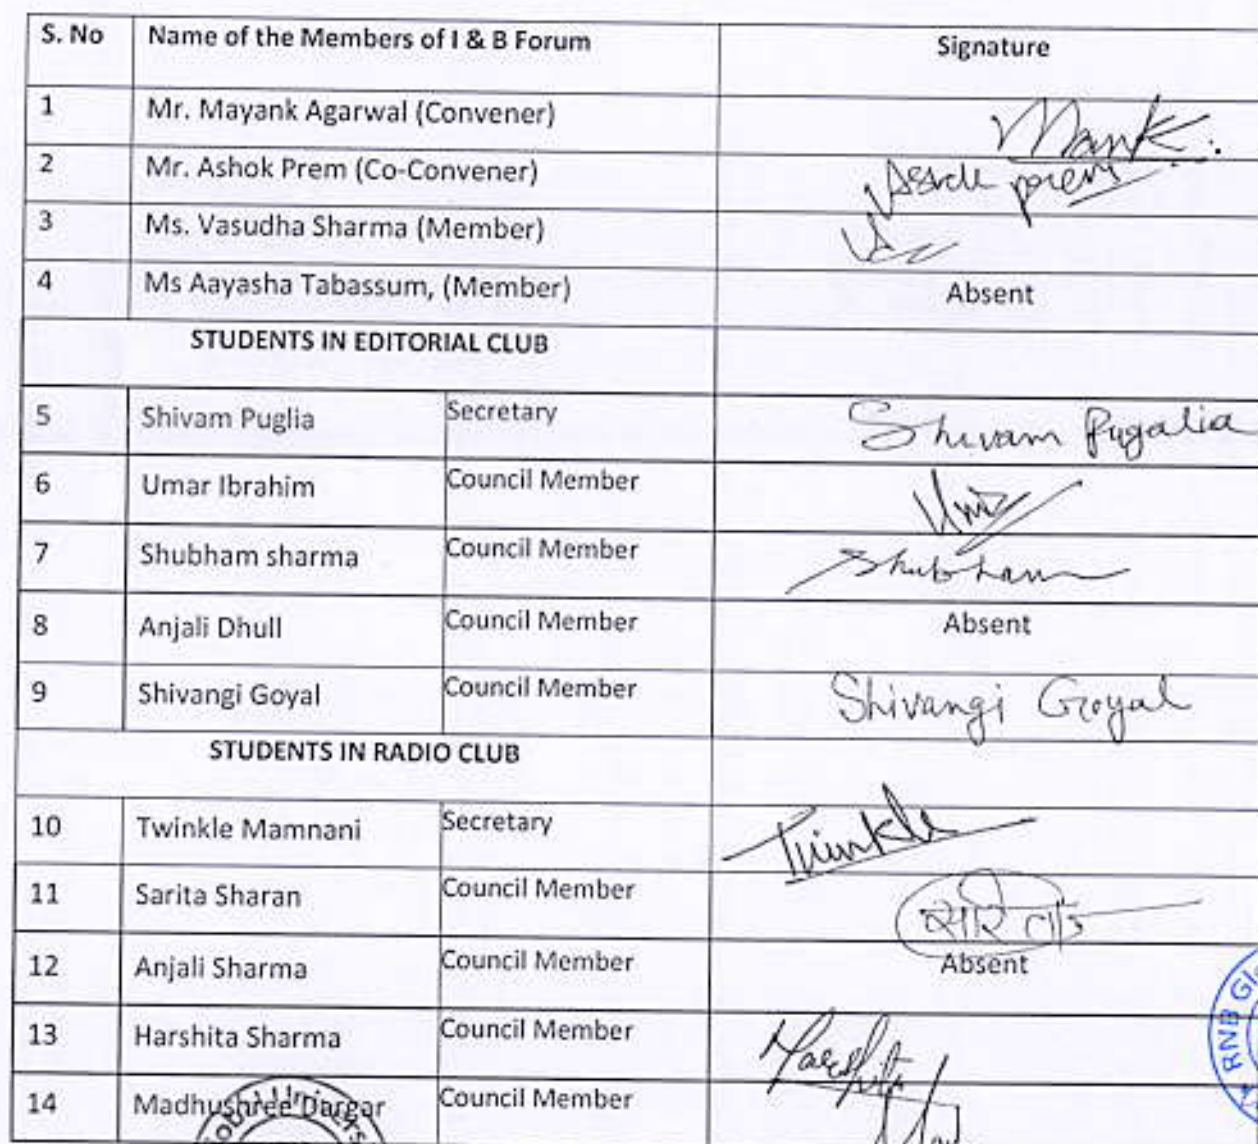 S. No Name of the Members of I & B Forum Signature
1 Mr. Mayank Agarwal (Convener) Mank.
2 Mr. Ashok Prem (Co-Convener) Ashok prem
3 Ms. Vasudha Sharma (Member)
4 Ms Aayasha Tabassum, (Member) Absent
STUDENTS IN EDITORIAL CLUB
5 Shivam Puglia Secretary Shivam Pugalia
6 Umar Ibrahim Council Member
7 Shubham sharma Council Member Shubham
8 Anjali Dhull Council Member Absent
9 Shivangi Goyal Council Member Shivangi Goyal
STUDENTS IN RADIO CLUB
10 Twinkle Mamnani Secretary Twinkle
11 Sarita Sharan Council Member सरिता
12 Anjali Sharma Council Member Absent
13 Harshita Sharma Council Member Harshita
14 Madhushree Dargar Council Member
RNB